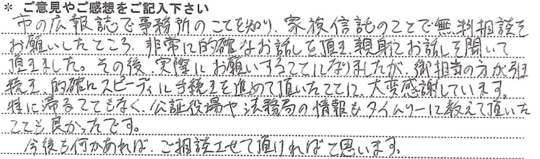 * ご意見やご感想をご記入下さい
市の広報誌で事務所のことを知り、家族信託のことで無料相談を
お願いしたところ、非常に的確なお話しを頂き、親身にお話しを聞いて
頂きました。その後、実際にお願いすることになりましたが、御担当の方が引き
続き、的確にスピーディに手続きを進めて頂いたことに、大変感謝しています。
特に滞ることもなく、公証役場や法務局の情報もタイムリーに教えて頂いた
ことも良かったです。
今後も何かあれば、ご相談させて頂ければと思います。